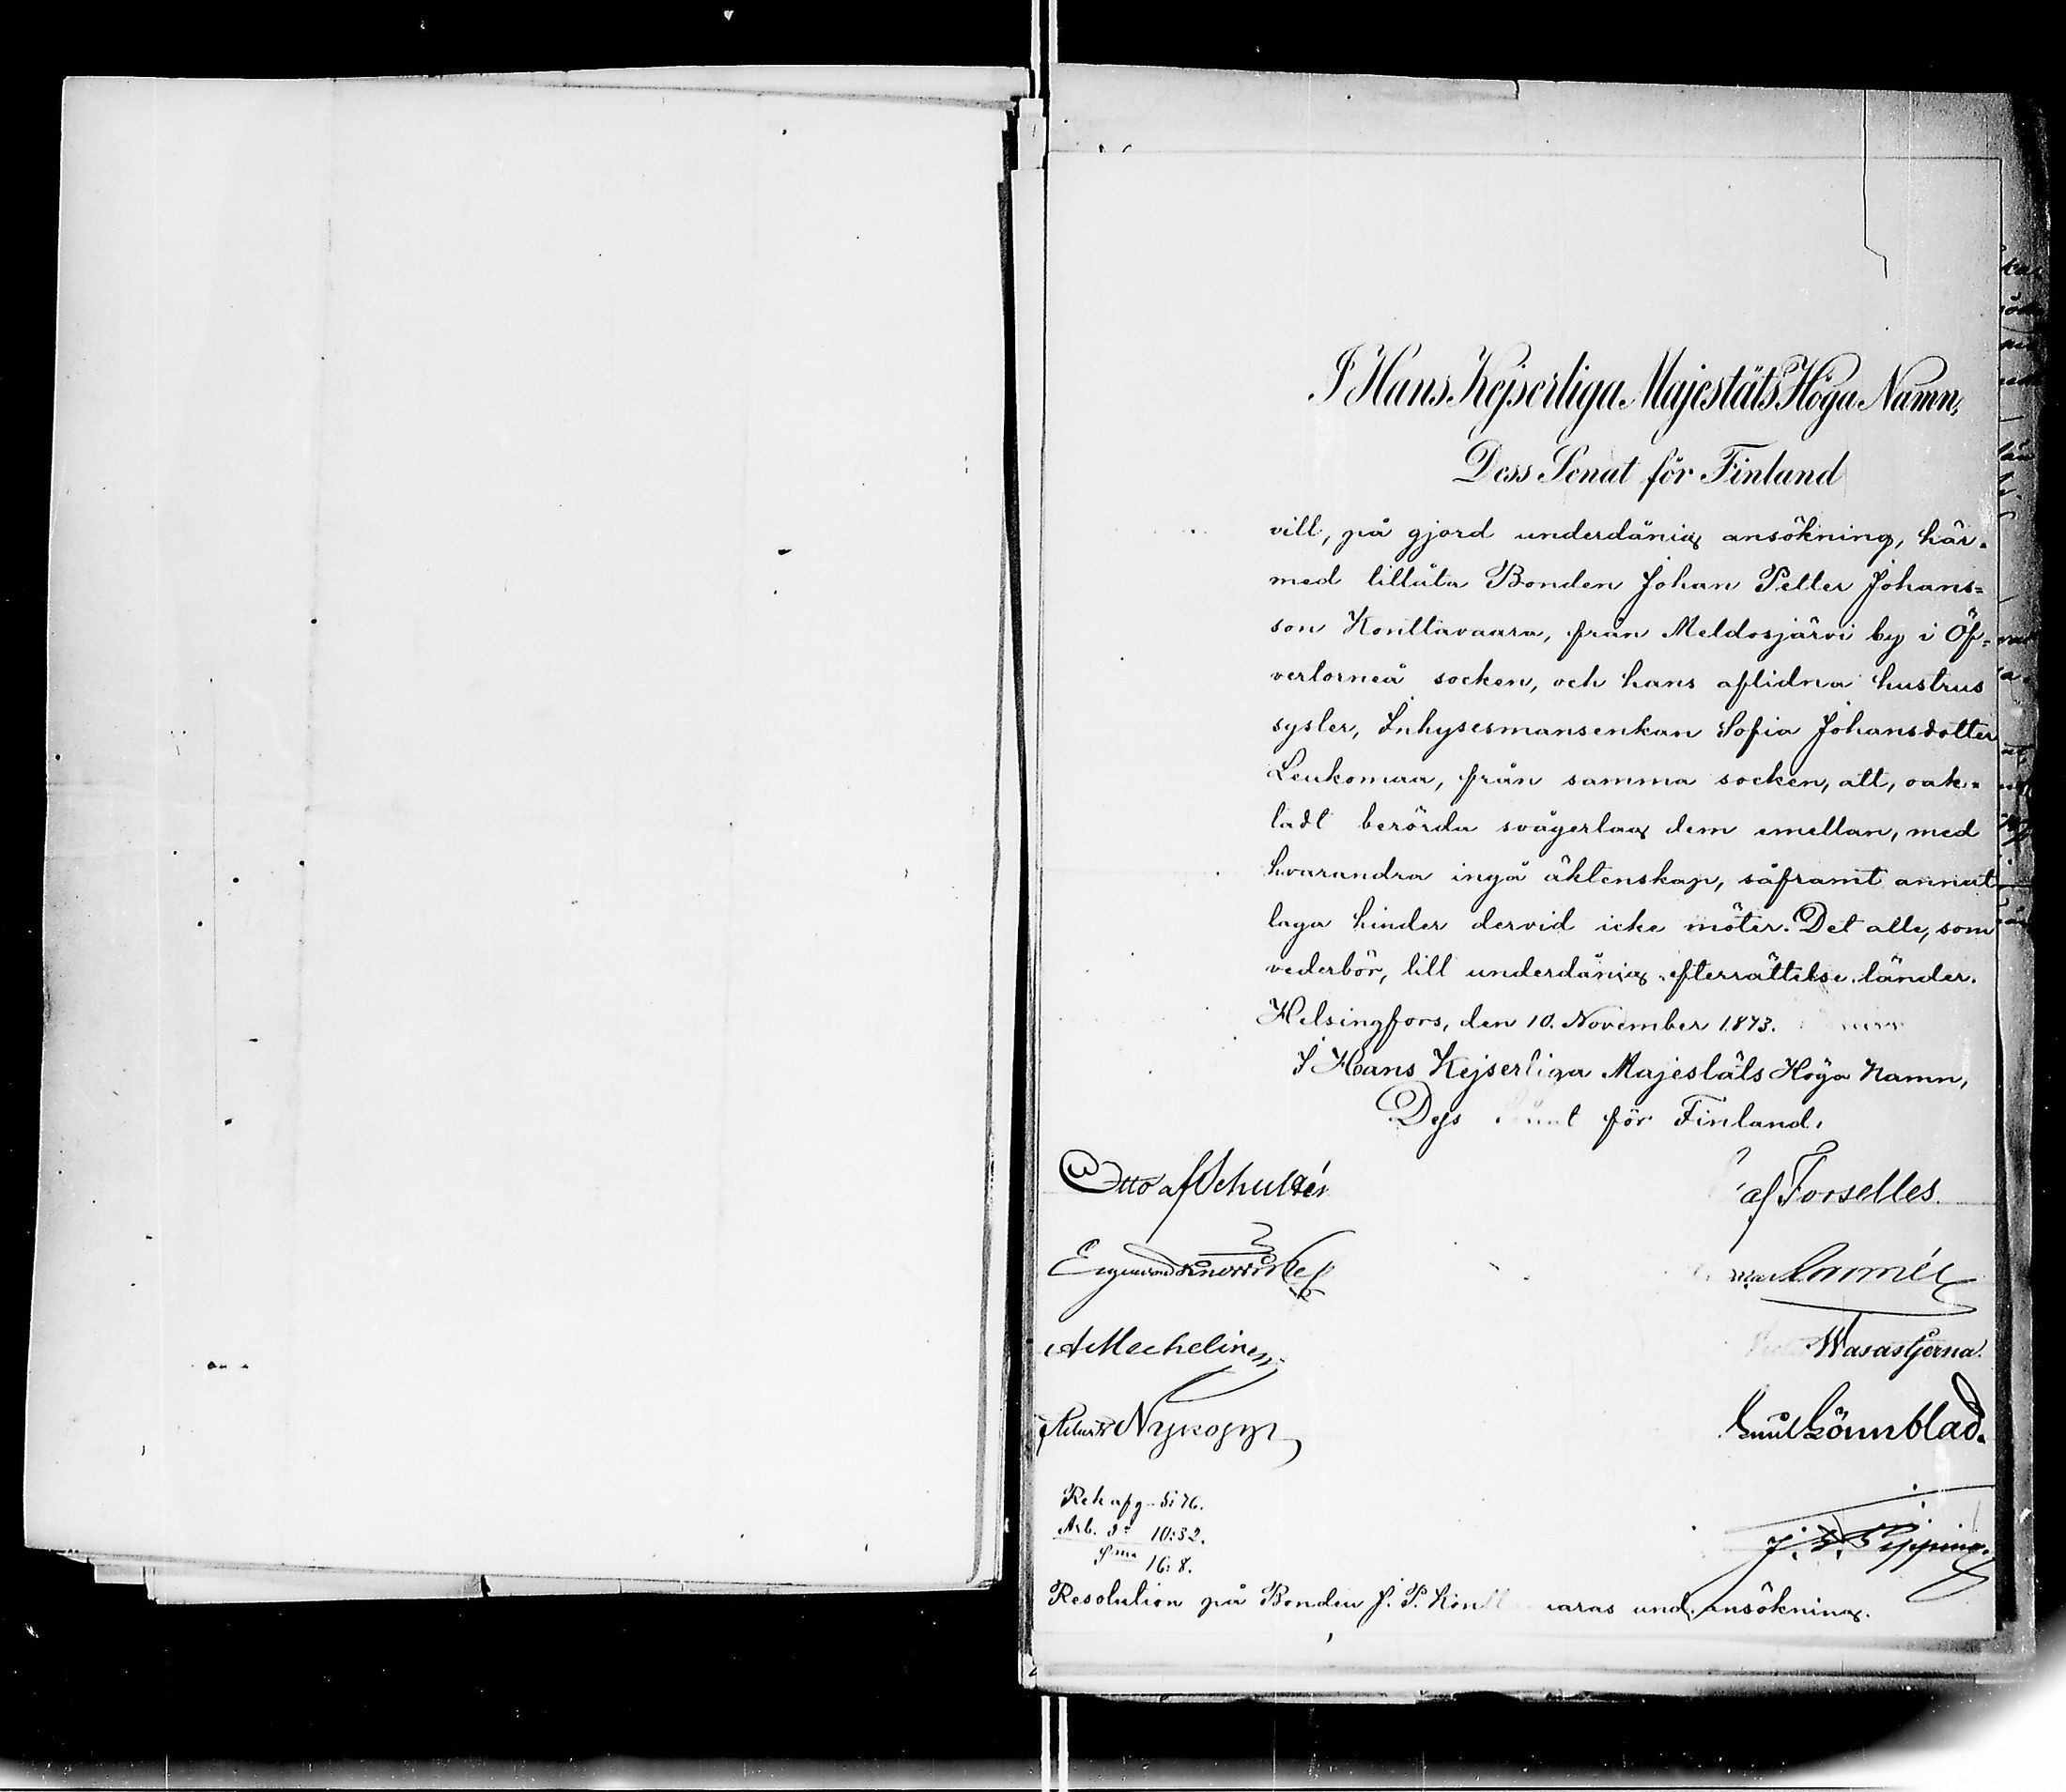 I Hans Kejserliga Majestäts Höga Namn,
Dess Senat för Finland
vill, på gjord underdånig ansökning, här-
med tillåta Bonden Johan Petter Johans=
son Konttavaara, från Meldosjärvi by i Öf=
vertorneå socken, och hans aflidna hustrus
syster, Inhysesmansenkan Sofia Johansdotter
Leukomaa, från samma socken, att, oak=
tadt berörda svågerlag dem emellan, med
hvarandra ingå äktenskap, såframt annat
laga hinder dervid icke möter. Det alle, som
vederbör, till underdånig efterrättelse länder.
Helsingfors, den 10. November 1873.
I Hans Kejserliga Majestäts Höga Namn,
Dess Senat för Finland,
Otto af Schultén
af Forselles.
A Mechelin
Wasastjerna
Nykopp
Emil Lönnblad.
Rek afg. 5:76.
Arb. do 10:32.
Sma 16:8.
J. J. Tipping.
Resolution på Bonden J. P. Kontt aras und. ansökning.